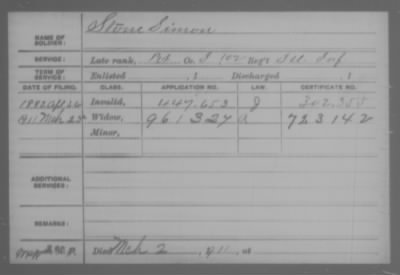 NAME OF SOLDIER: Stone Simon
SERVICE: Late rank, Pvt Co. I 102 Reg't Ill Inf
TERM OF SERVICE: Enlisted , 1 Discharged , 1
DATE OF FILING. CLASS. APPLICATION NO. LAW. CERTIFICATE NO.
1882 Apl 26 Invalid, 447.653 J 302.358
1911 Mch 23 Widow, 961327 a 723142
Minor,
ADDITIONAL SERVICES:
REMARKS:
Died Mch 2, 1911, at